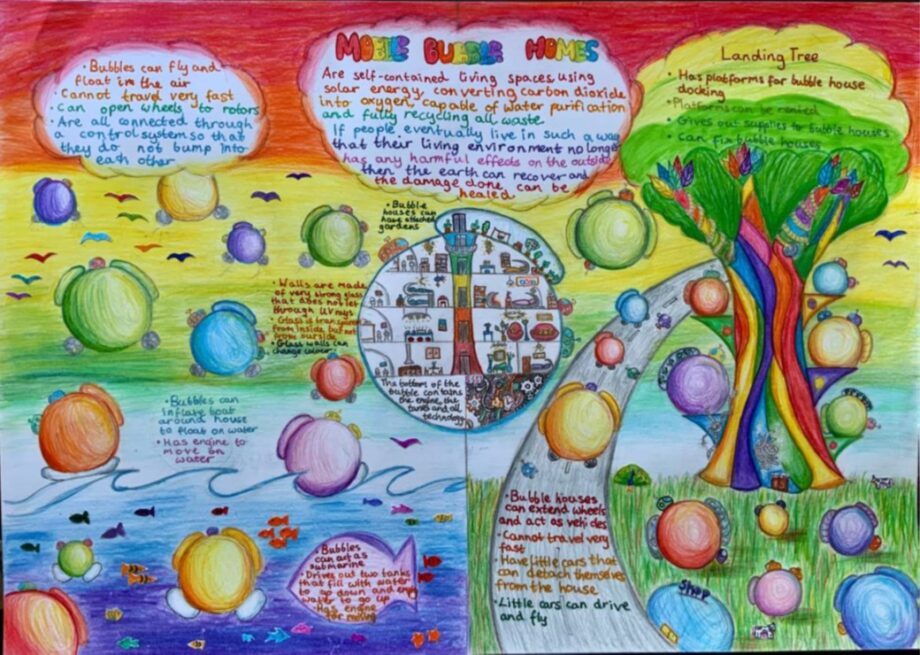 MOBILE BUBBLE HOMES
Are self-contained living spaces, using
solar energy, converting carbon dioxide
into oxygen, capable of water purification
and fully recycling all waste.
If people eventually live in such a way
that their living environment no longer
has any harmful effects on the outside
then the earth can recover and
the damage done can be
healed
• Bubbles can fly and
float in the air
• Cannot travel very fast
• Can open wheels to rotors
• Are all connected through
a control system so that
they do not bump into
each other
Landing Tree
• Has platforms for bubble house
docking
• Platforms can be rented
• Gives out supplies to bubble houses
• Can fix bubble houses
• Bubble
houses can
have attached
gardens
• Walls are made
of very strong glass
that does not let
through UV rays
• Glass is transparent
from inside but not
from outside
• Glass walls can
change colour
The bottom of the
bubble contains
the engine, the
tanks and all
technology
• Bubbles can
inflate boat
around house
to float on water
• Has engine to
move on
water
• Bubbles
can act as
submarine
• Drives out two tanks
that fill with water
to go down and empty
water to go up
• Has engine
for moving
• Bubble houses
can extend wheels
and act as vehicles
• Cannot travel very
fast
• Have little cars that
can detach themselves
from the house
• Little cars can drive
and fly
Shop